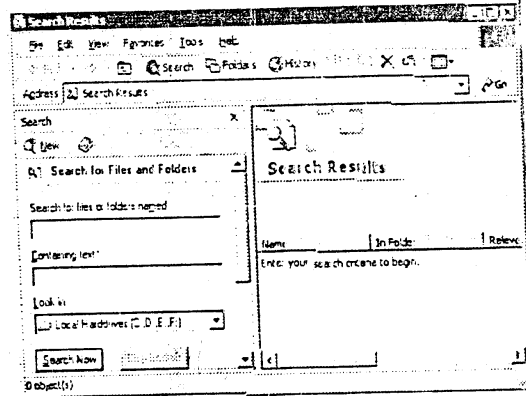 Search Results
File Edit View Favorites Tools Help
Search Folders History
Address Search Results Go
Search
New
Search for Files and Folders
Search for files or folders named
Containing text:
Look in:
Local Harddrives (C:,D:,E:,F:)
Search Now
Search Results
Name In Folder Releva
Enter your search criteria to begin.
0 object(s)